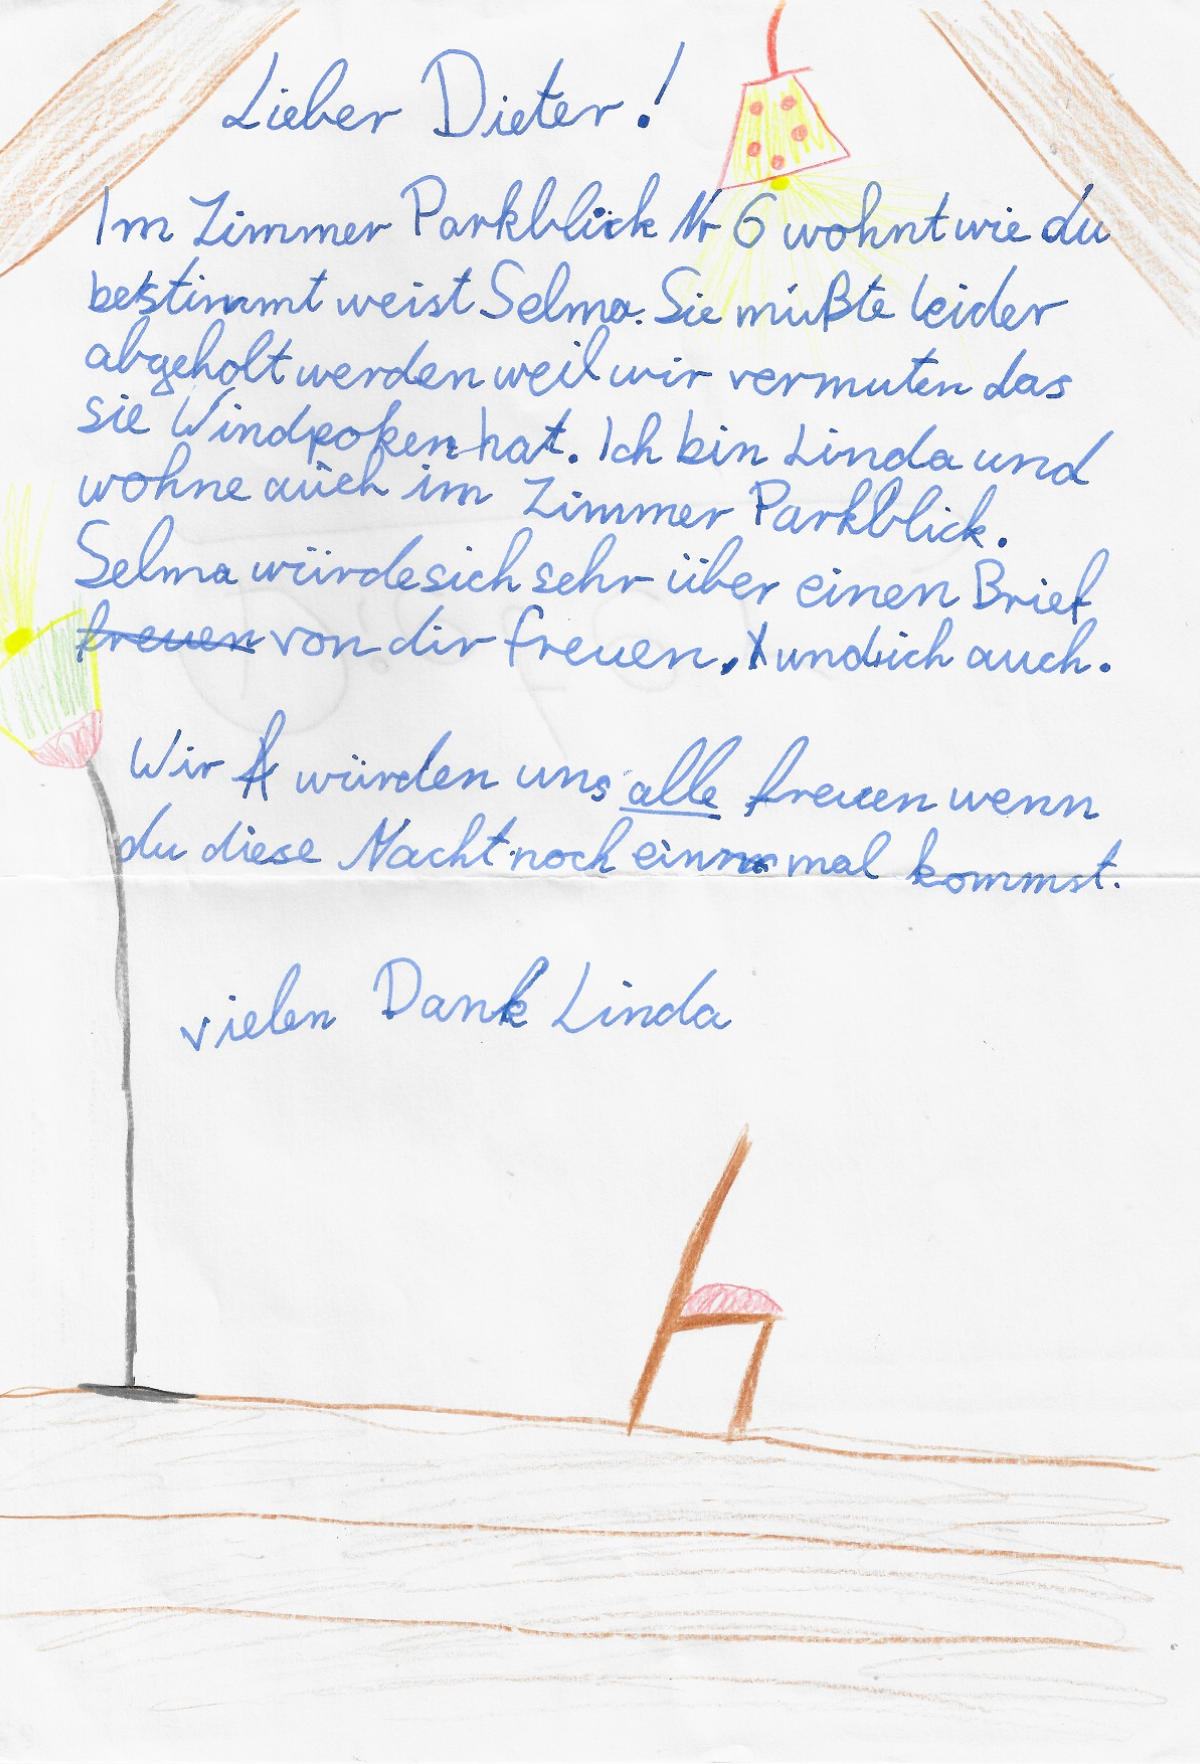 Lieber Dieter!
Im Zimmer Parkblick Nr 6 wohnt wie du
bestimmt weist Selma. Sie müßte leider
abgeholt werden weil wir vermuten das
sie Windpoken hat. Ich bin Linda und
wohne auch im Zimmer Parkblick.
Selma würde sich sehr über einen Brief
freuen von dir freuen, und ich auch.
Wir würden uns alle freuen wenn
du diese Nacht noch einmal kommst.
vielen Dank Linda